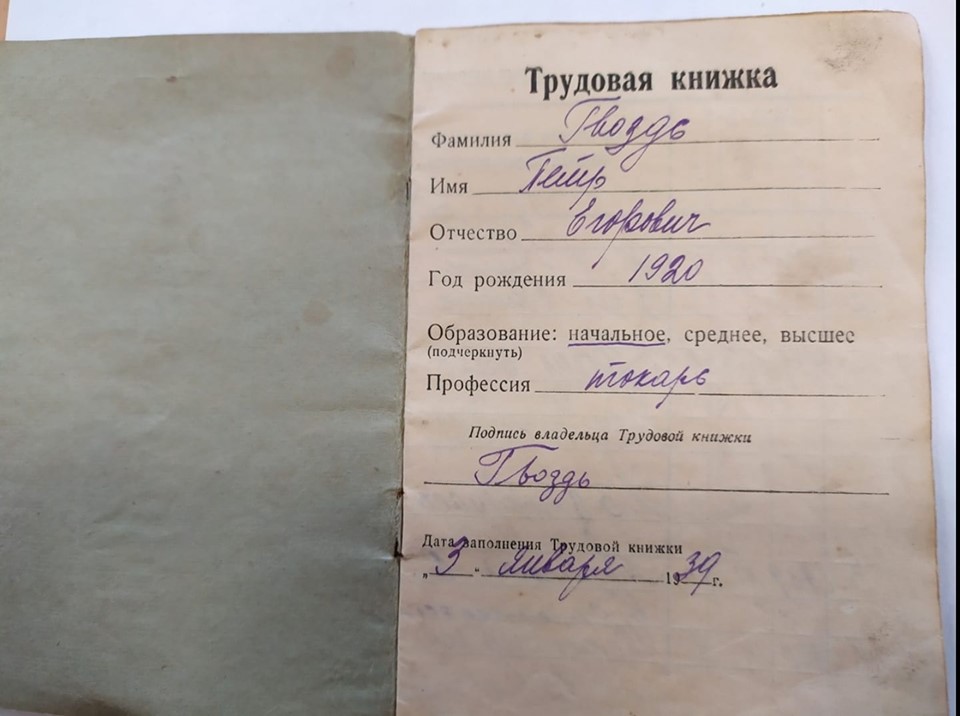 Трудовая книжка
Фамилия Гвоздь
Имя Петр
Отчество Егорович
Год рождения 1920
Образование: начальное, среднее, высшее
(подчеркнуть)
Профессия токарь
Подпись владельца Трудовой книжки
Гвоздь
Дата заполнения Трудовой книжки
„3" января 1939 г.